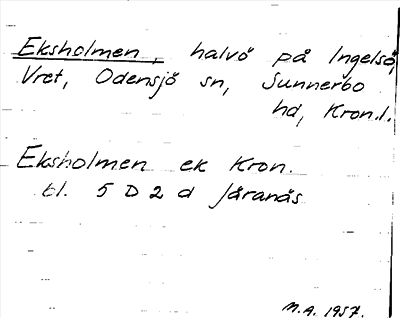 Eksholmen, halvö på Ingelsö,
Vret, Odensjö sn, Sunnerbo
hd, Kron.l.
Eksholmen ek Kron.
bl. 5 D 2 d Jåranäs
M.A. 1957.